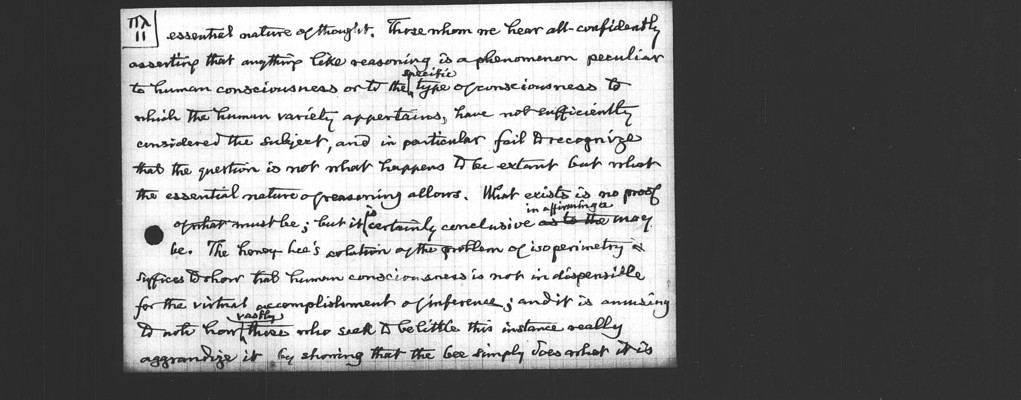 11
essential nature of thought. Those whom we hear all-confidently
asserting that anything like reasoning is a phenomenon peculiar
to human consciousness or to the specific type of consciousness to
which the human variety appertains, have not sufficiently
considered the subject, and in particular fail to recognize
that the question is not what happens to be extant but what
the essential nature of reasoning allows. What exists is no proof
of what must be; but it is certainly conclusive as to the in affirming a may
be. The honey bee's solution of the problem of isoperimetry
suffices to show that human consciousness is not indispensible
for the virtual accomplishment of inference; and it is amusing
to note how vastly those who seek to belittle this instance really
aggrandize it by showing that the bee simply does what it is